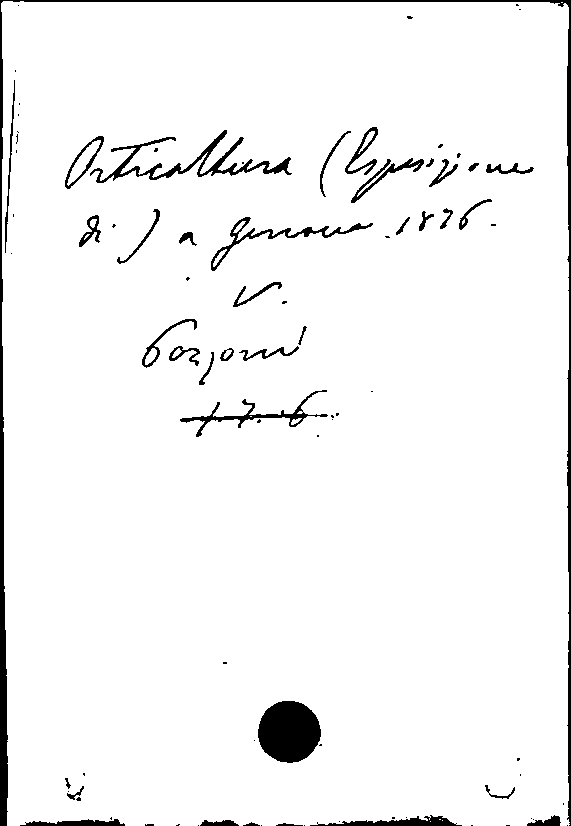 Orticoltura (Esposizione
di) a Genova 1876.
V.
1.7.6